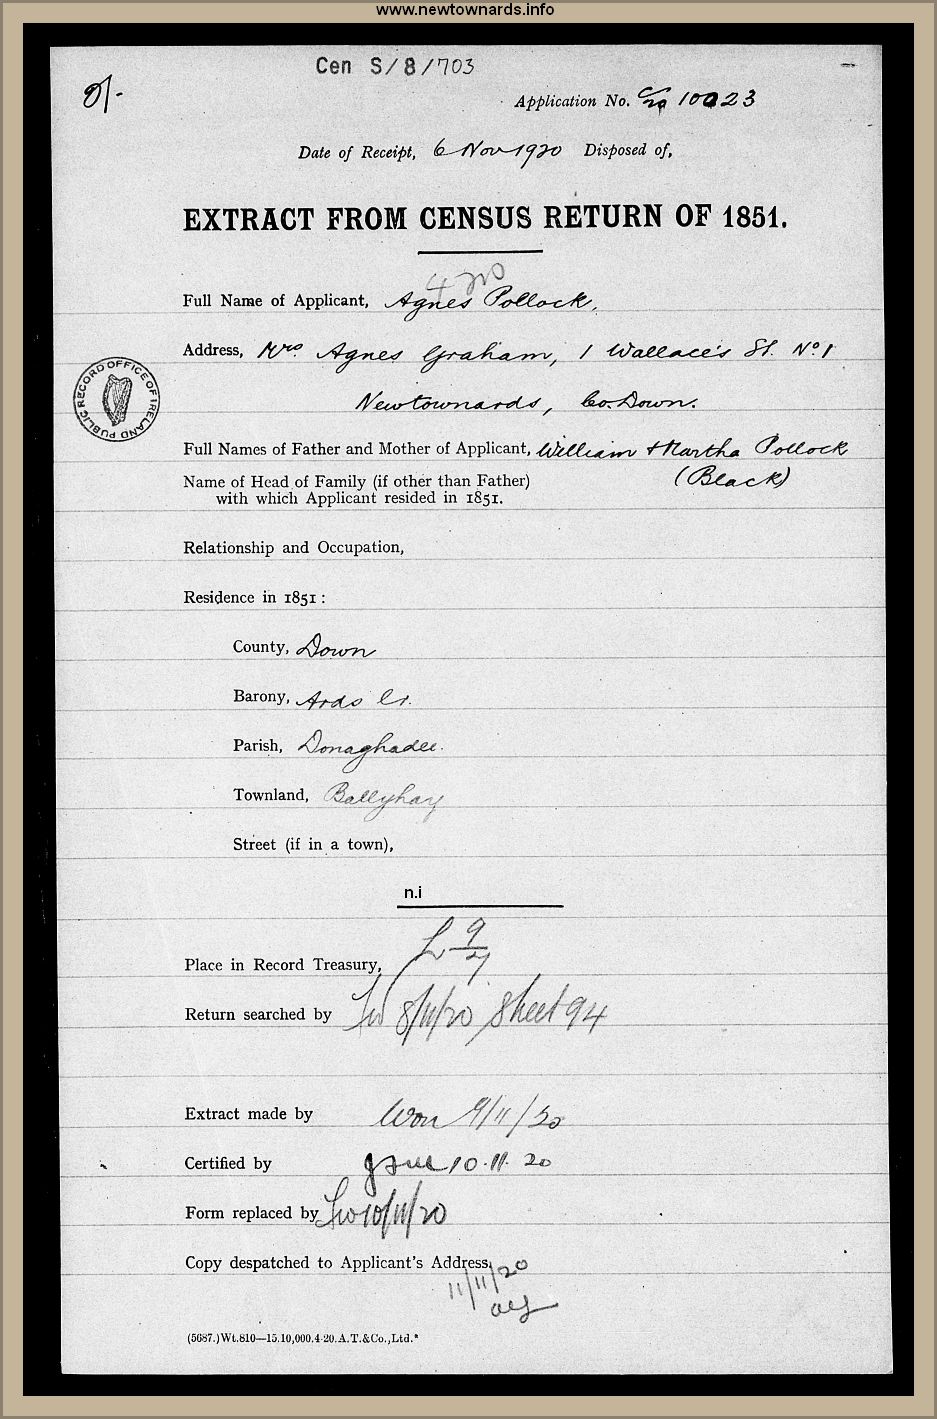 www.newtownards.info
Cen S/8/703
Application No. C/20 10023
Date of Receipt, 6 Nov 1920 Disposed of,
EXTRACT FROM CENSUS RETURN OF 1851.
Full Name of Applicant, Agnes Pollock,
Address, Mrs Agnes Graham, 1 Wallace's St. No 1
Newtownards, Co. Down.
PUBLIC RECORD OFFICE OF IRELAND
Full Names of Father and Mother of Applicant, William & Martha Pollock
(Black)
Name of Head of Family (if other than Father)
with which Applicant resided in 1851.
Relationship and Occupation,
Residence in 1851 :
County, Down
Barony, Ards Lr.
Parish, Donaghadee.
Townland, Ballyhay
Street (if in a town),
n.i
Place in Record Treasury,
Return searched by 8/11/20 Sheet 94
Extract made by 9/11/20
Certified by 10.11.20
Form replaced by 10/11/20
Copy despatched to Applicant's Address,
11/11/20
(5687.)Wt.810—15.10,000.4·20.A.T.&Co.,Ltd.*